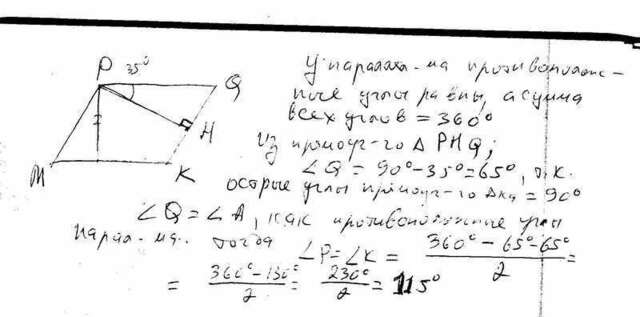 P 35° Q
H
M K
У паралл-ма противополож-
ные углы равны, а сумма
всех углов = 360°
Из прямоуг-го Δ PHQ;
∠Q = 90°-35°=65°, т.к.
острые углы прямоуг-го Δка = 90°
∠Q = ∠A, как противоположные углы
парал-ма. тогда ∠P=∠K = (360° - 65°-65°)/2 =
= (360°-130°)/2 = 230°/2 = 115°